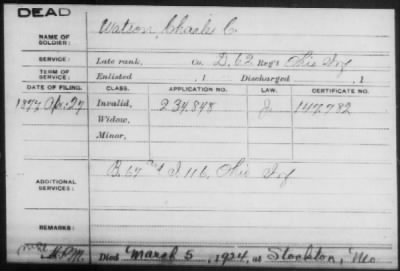 DEAD
NAME OF SOLDIER: Watson, Charles C.
SERVICE: Late rank, Co. D, 62 Reg't Ohio Inf
TERM OF SERVICE: Enlisted , 1 Discharged , 1
DATE OF FILING. CLASS. APPLICATION NO. LAW. CERTIFICATE NO.
1877 Apr. 27 Invalid, 234.848 147.782
Widow,
Minor,
ADDITIONAL SERVICES: B. 67 & I 116, Ohio Inf
REMARKS:
Died March 5, 1924, at Stockton, Mo